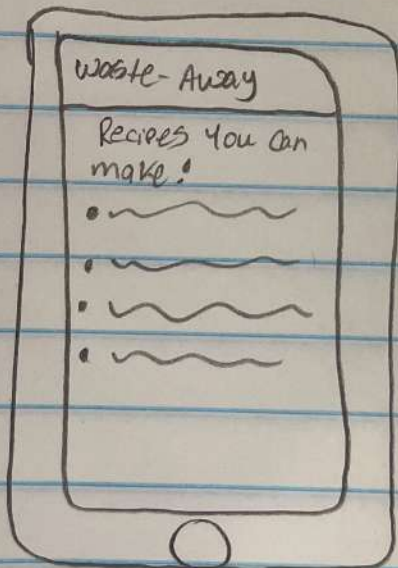 Waste-Away
Recipes You Can
make!